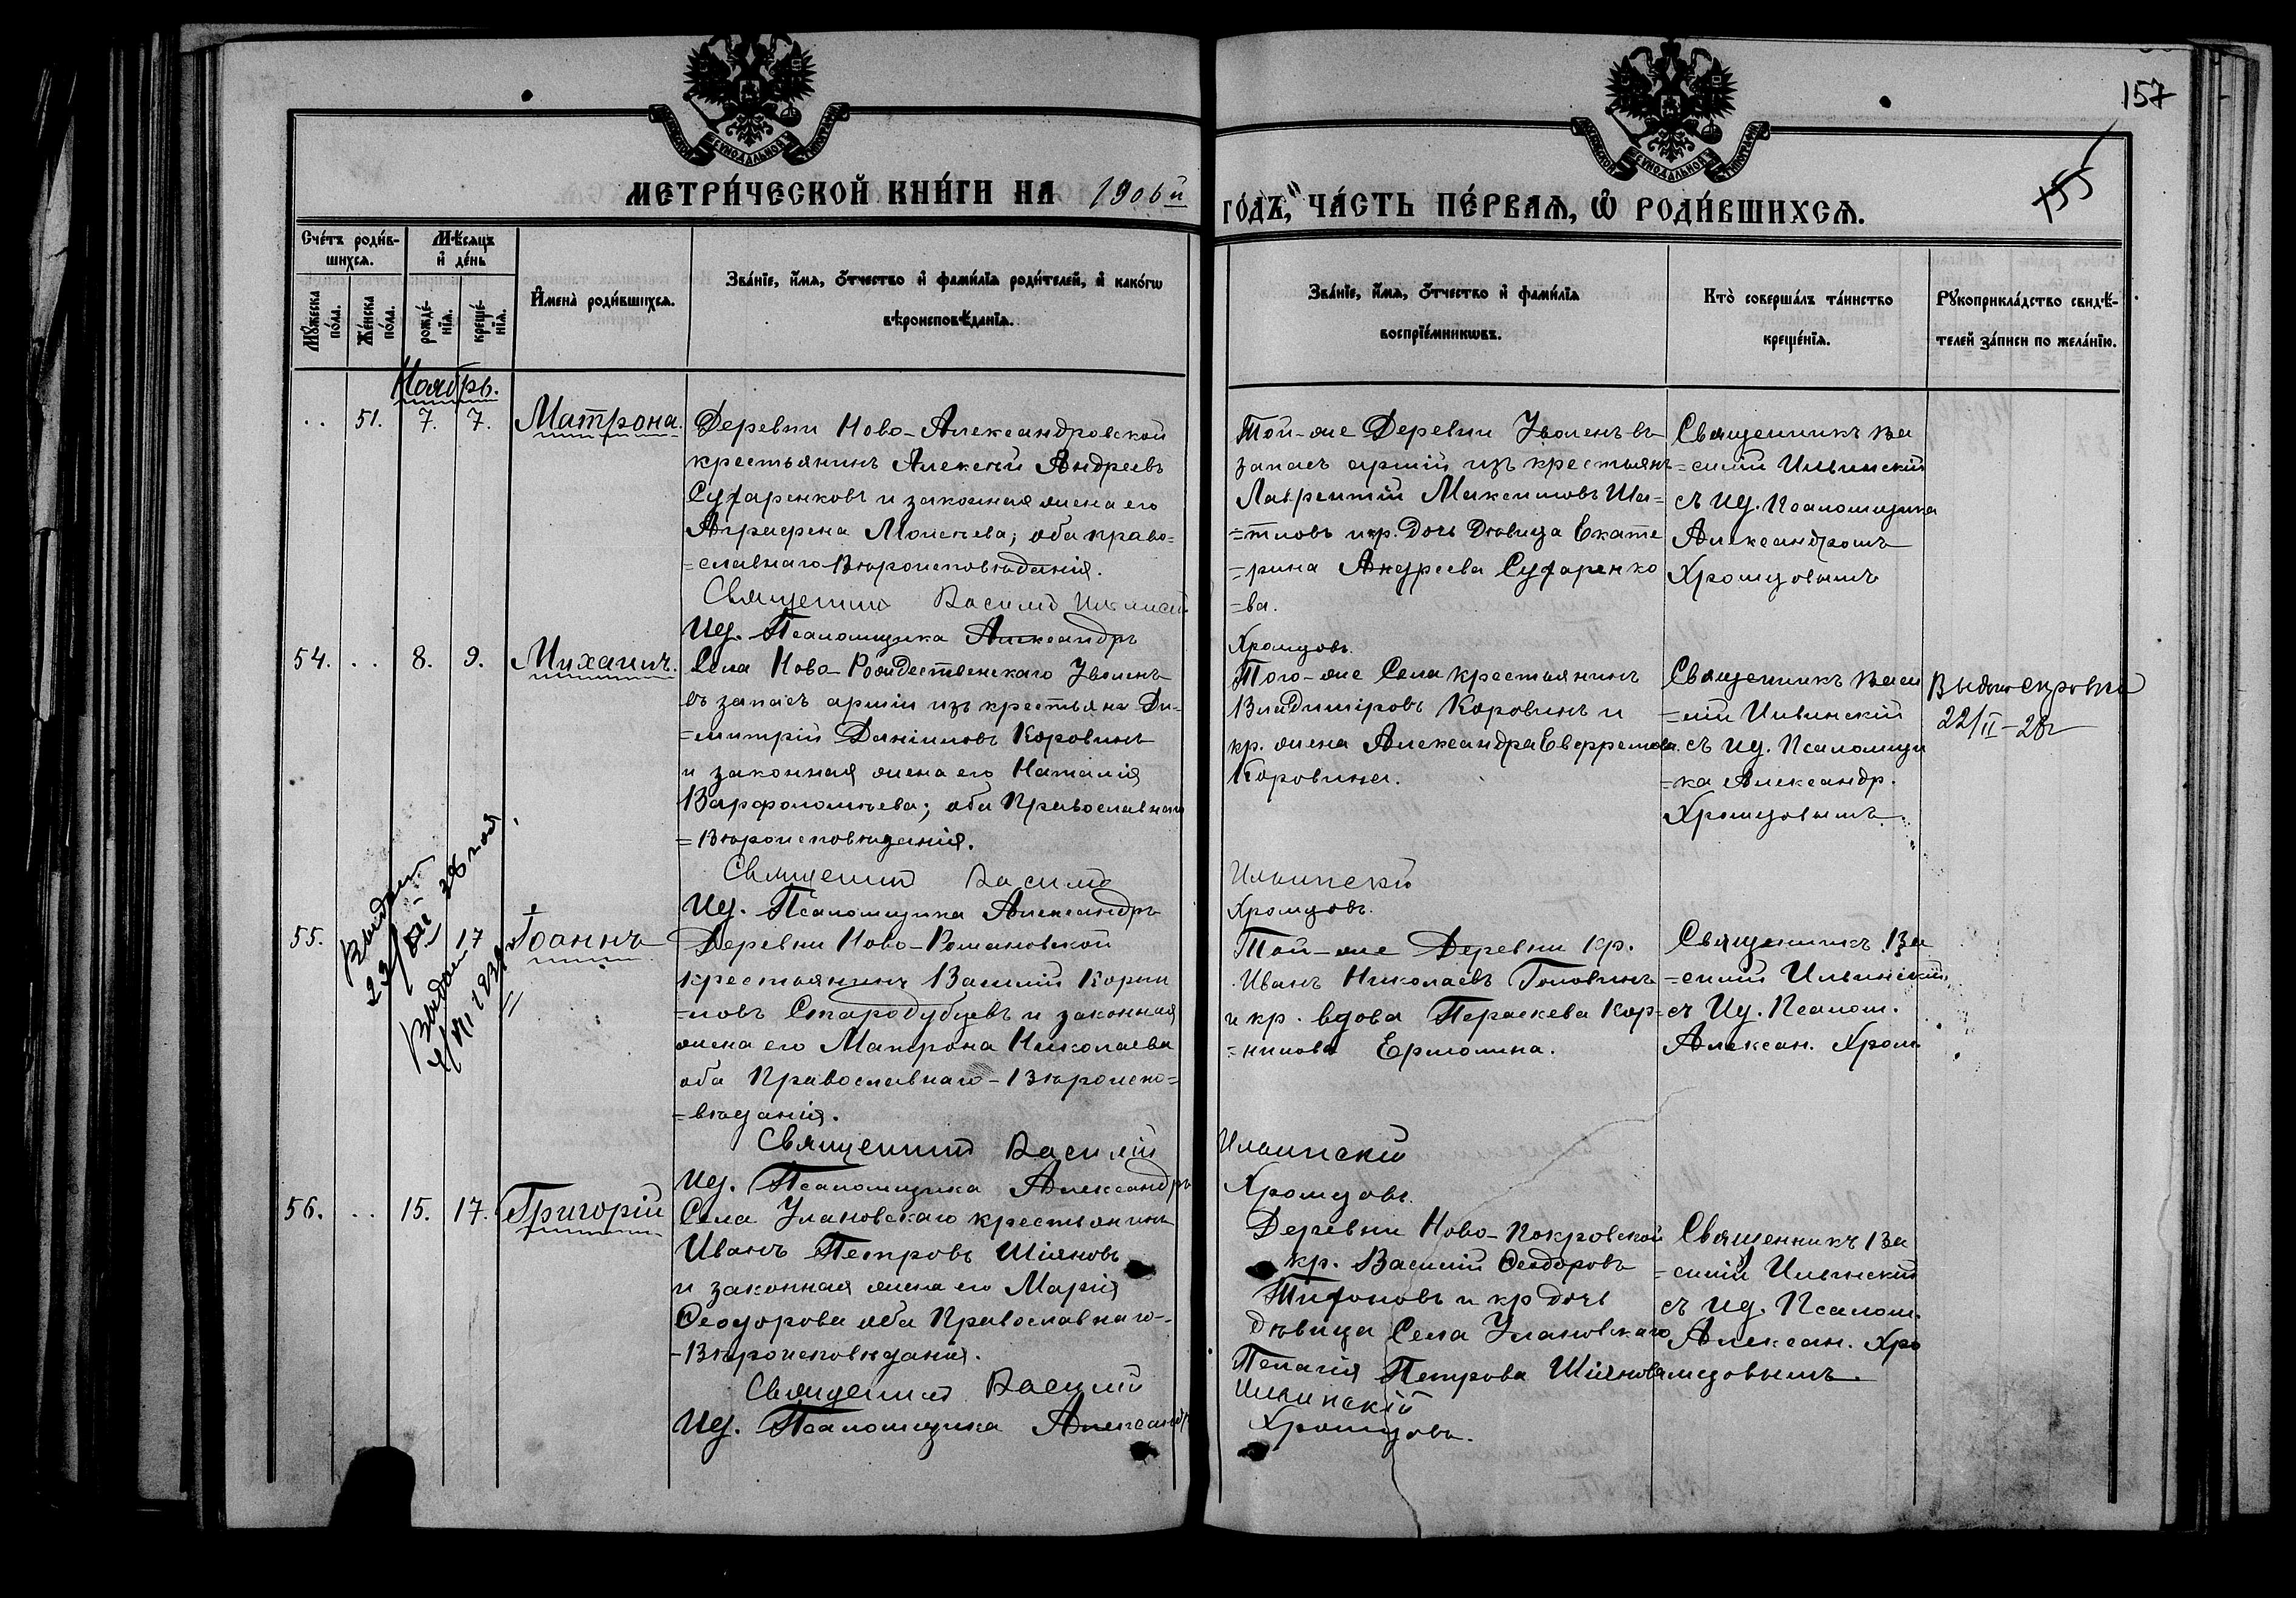 157
155
МЕТРИ́ЧЕСКОЙ КНИ́ГИ НА 1906й
ГО́ДЪ, ЧА́СТЬ ПЕ́РВАѦ, Ѽ РОДИ́ВШИХСѦ.
Счетъ роди́в-
шихсѧ.
Мѣ́сѧцъ
и҆ де́нь
Мꙋжеска
по́ла.
Же́нска
по́ла.
рожде́-
нїѧ.
креще́-
нїѧ.
И҆мена̀ роди́вшихсѧ.
Зва́нїе, и҆́мѧ, ѻ҆́тчество и҆ фами́лїѧ роди́телей, и҆ како́гѡ
вѣроисповѣ́данїѧ.
Зва́нїе, и҆́мѧ, ѻ҆́тчество и҆ фами́лїѧ
воспрїе́мникѡвъ.
Кто̀ соверша́лъ та́инство
креще́нїѧ.
Рꙋкоприкла́дство свидѣ́-
телей за́писи по жела́нїю.
Ноябрь.
51. 7. 7. Матрона.
Деревни Ново-Александровской
крестьянинъ Алексѣй Андреевъ
Сухаренковъ и законная жена его
Агрифена Моисеева; оба право=
=славнаго Вѣроисповѣданія.
Священникъ Василій Ильинскій
Ид. Псаломщика Александръ
Той-же Деревни Уволенъ въ
запасъ арміи изъ крестьянъ
Лаврентій Максимовъ Ша=
=тловъ и кр. Дочь Дѣвица Екате
=рина Андреева Сухаренко
=ва.
Хромцовъ.
Священникъ Ва
=силій Ильинскій
съ Ид. Псаломщика
Александромъ
Хромцовымъ
54. . . 8. 9. Михаилъ.
Села Ново-Рождественскаго Уволенъ
въ запасъ арміи изъ крестьянъ Ди-
=митрій Даніиловъ Коровинъ
и законная жена его Наталія
Варфоломѣева; оба Православнаго
=Вѣроисповѣданія.
Священникъ Василій
Ид. Псаломщика Александръ
Того-же Села крестьянинъ
Владиміровъ Коровинъ и
кр. жена Александра
Коровина.
Ильинскій
Хромцовъ.
Священникъ Васи
=лій Ильинскій
съ ид. Псаломщи
=ка Александр.
Хромцовымъ.
22/II-28г
55. 17 Іоаннъ
Деревни Ново-Романовской
крестьянинъ Василій Корни
=ловъ Стародубцевъ и законная
жена его Матрона Николаева
оба Православнаго-Вѣроиспо=
=вѣданія.
Священникъ Василій
Ид. Псаломщика Александръ
Той-же Деревни Кр.
Иванъ Николаевъ Головинъ
и кр. вдова Параскева Кор=
=нилова Ермолина.
Ильинскій
Хромцовъ.
Священникъ Ва
=силій Ильинскій,
съ Ид. Псалом.
Алексан. Хром.
56. . . 15. 17. Григорій
Села Улановскаго крестьянинъ
Иванъ Петровъ Шіяновъ
и законная жена его Марія
Ѳеодорова оба Православнаго-
-Вѣроисповѣданія.
Священникъ Василій
Ид. Псаломщика Александръ
Деревни Ново-Покровской
кр. Василій Ѳеодоровъ
Тифоновъ и кр дочь
дѣвица Села Улановскаго
Пелагія Петрова Шіянова
Ильинскій
Хромцовъ.
Священникъ Ва
=силій Ильинскій
съ ид. Псалом.
Алексан. Хро
мцовымъ.